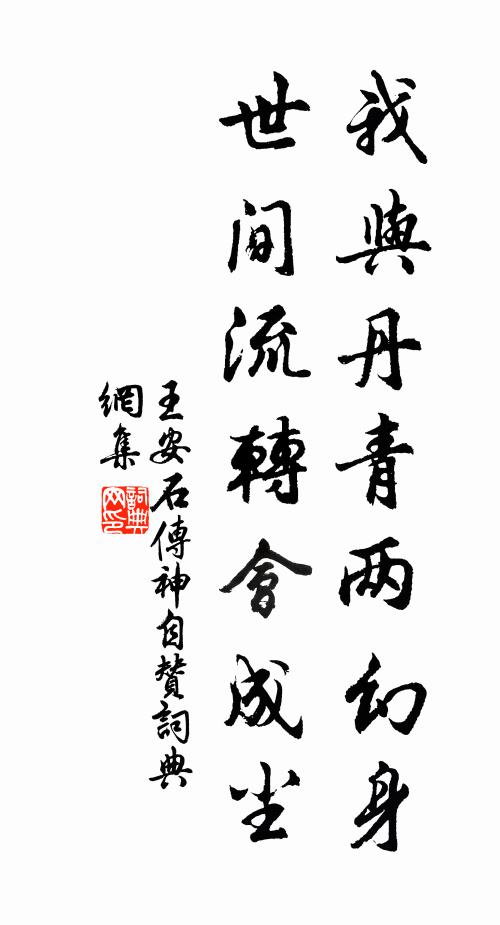 我與丹青两幻身
世間流轉會成尘
王安石傳神自赞詞典
網集
詞典
网印